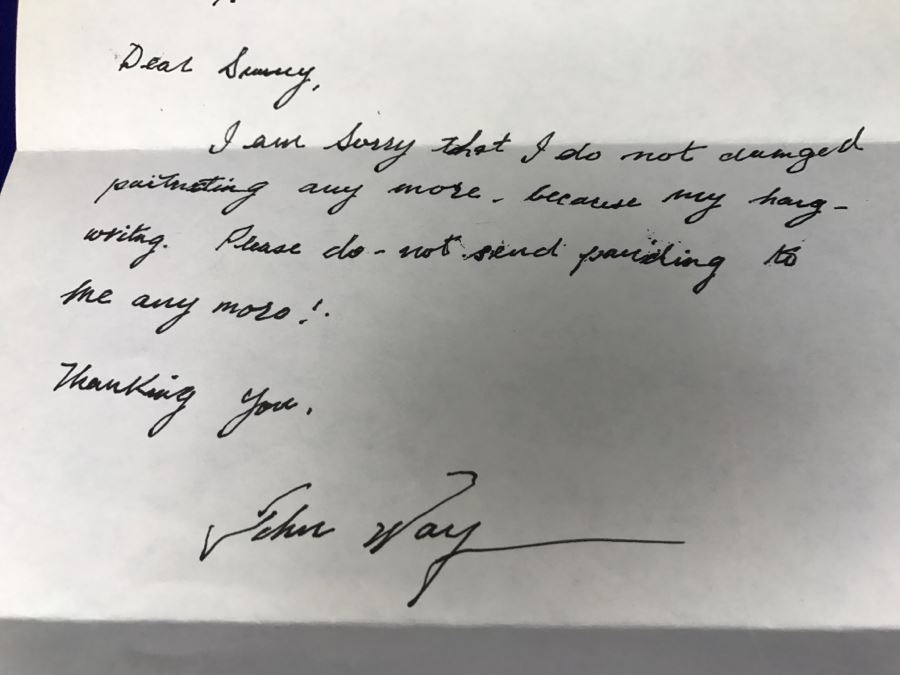 Dear Sunny,
I am Sorry that I do not damged
paitnting any more. because my hang-
writng. Please do-not send painding to
me any more!.
Thanking You.
John Way